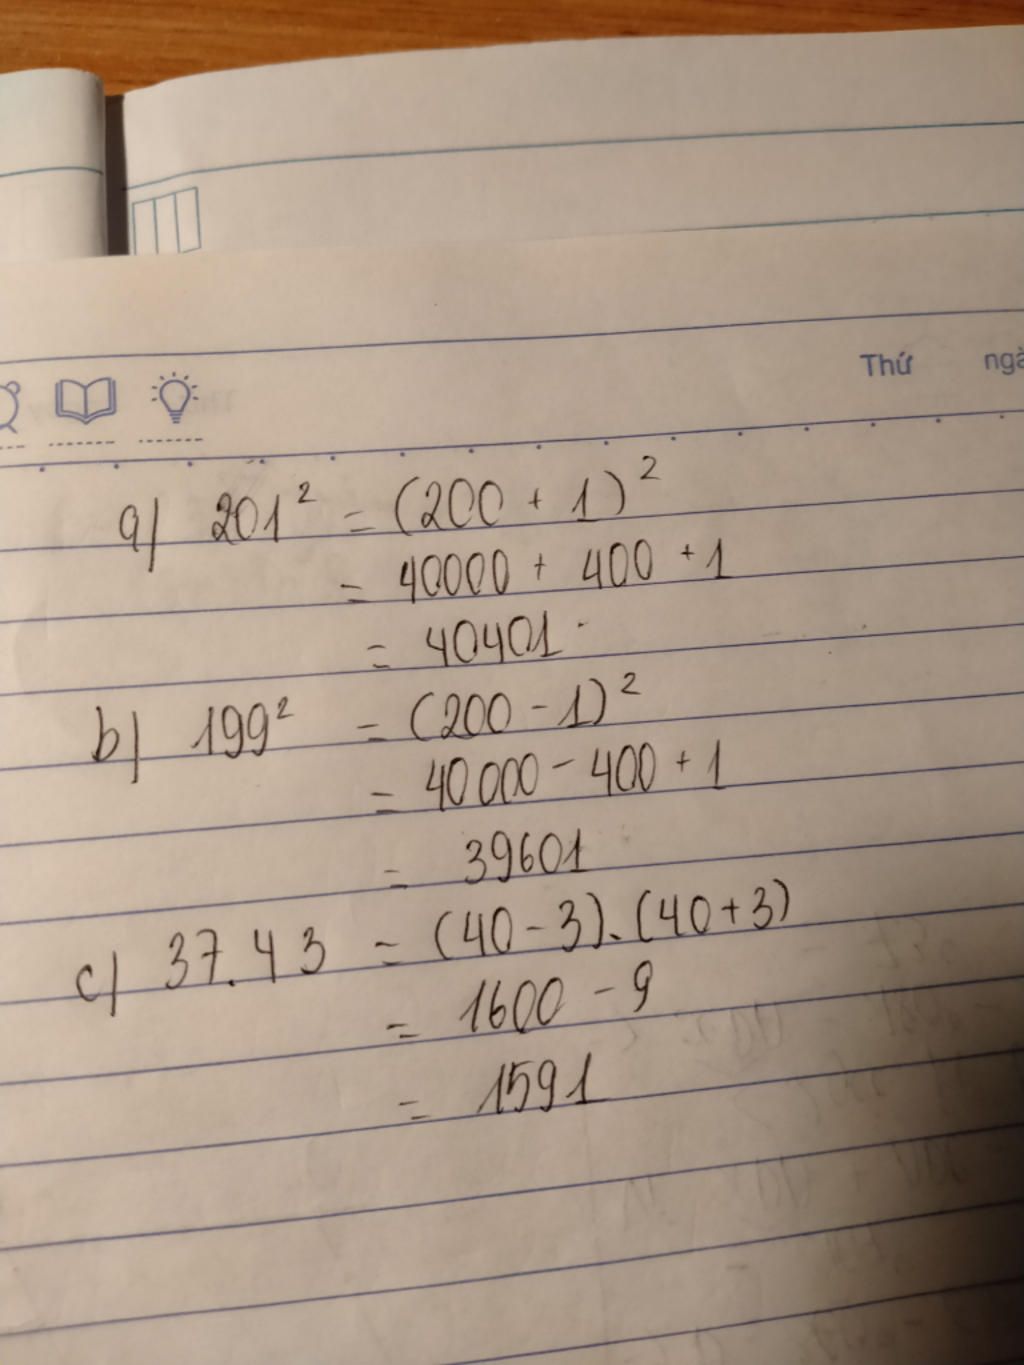 Thứ ngà
a) 201² = (200 + 1)²
= 40000 + 400 + 1
= 40401
b) 199² = (200 - 1)²
= 40000 - 400 + 1
= 39601
c) 37.43 = (40 - 3).(40 + 3)
= 1600 - 9
= 1591